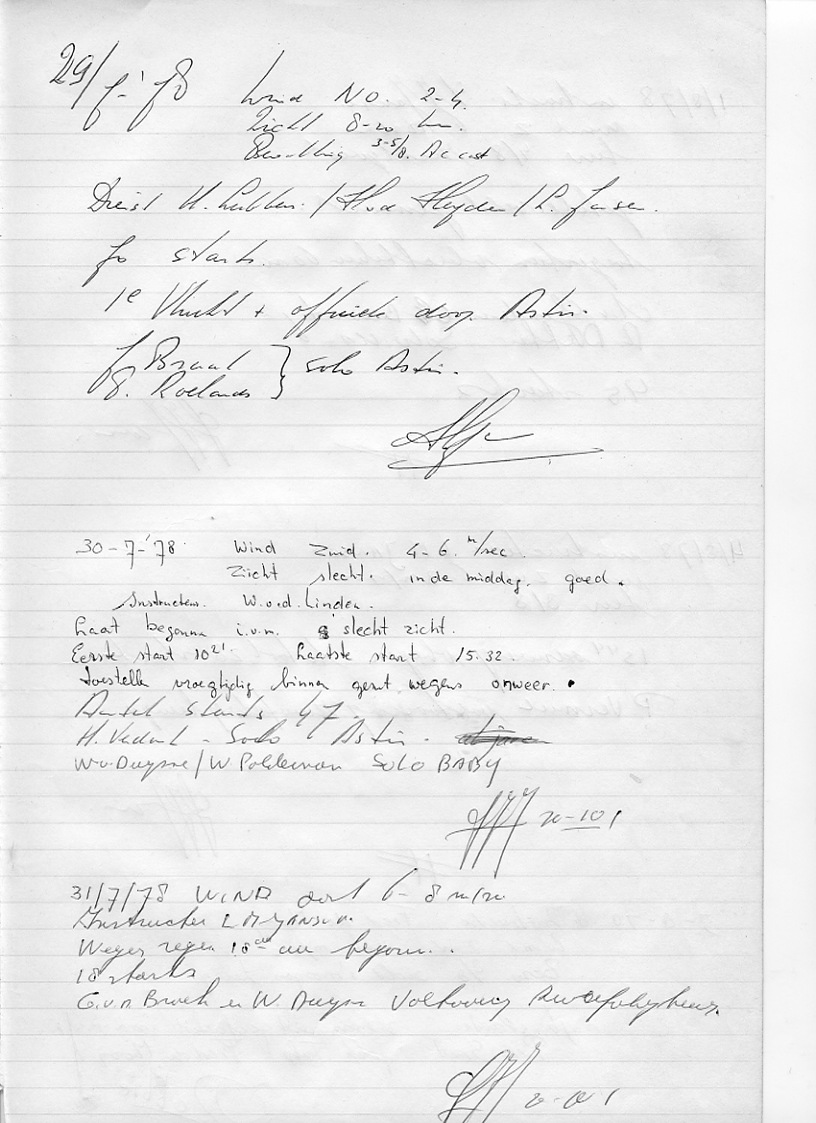 29/7-'78 Wind NO. 2-4.
Zicht 8-20 km.
Bewolking 3-5/8. Ac cast
Dienst H. Lubbers / H.v.d. Heyden / L. Jansen.
70 starts.
1e Vlucht + officiele door Astir.
J. Braat } solo Astir.
E. Roelands
30-7-'78. Wind Zuid. 4-6. m/sec.
Zicht slecht. in de middag. goed.
Instructeurs. W.v.d. Linden.
Laat begonnen i.v.m. slecht zicht.
Eerste start 10 21. Laatste start 15.32.
toestellen vroegtijdig binnen gezet wegens onweer.
Aantal starts 47.
H. Vedant - Solo Astir.
W v. Duyne / W Polderman SOLO BABY
31/7/78 WIND 6-8 m/sec
Instructeur L M JANSEN.
Wegens regen 18 uur begonnen.
18 starts
G.v.d. Broek en W. Duyne Voltooiing